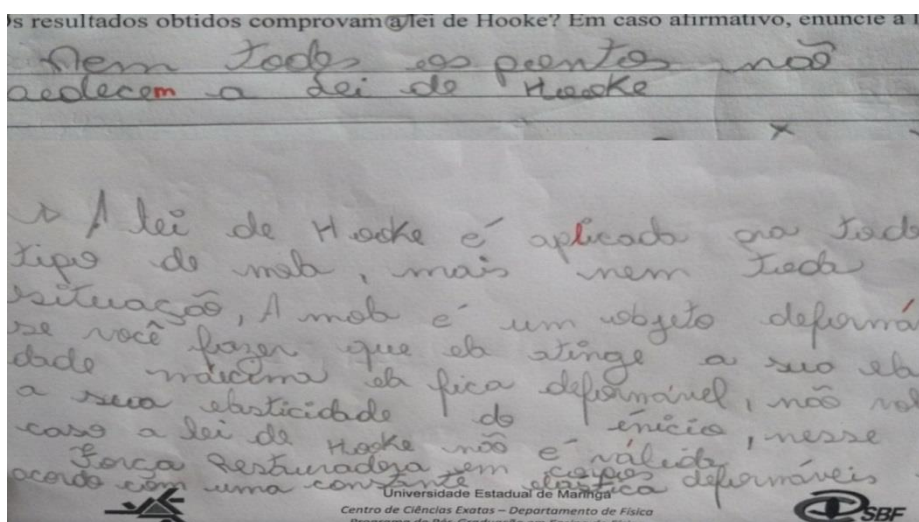 s resultados obtidos comprovam a lei de Hooke? Em caso afirmativo, enuncie a l
Nem todos os pontos não
aedecem a Lei de Hooke
A lei de Hooke é aplicado pra tod
tipo de mola, mais nem toda
situação, A mola é um objeto deformá
se você fazer que ela atinge a suo ela
dade máxima ela fica deformável, não vol
a sua elasticidade do início, nesse
caso a lei de Hooke não é válida
Força Restauradora em corpos deformáveis
acordo com uma constante elástica
Universidade Estadual de Maringá
Centro de Ciências Exatas – Departamento de Física
SBF